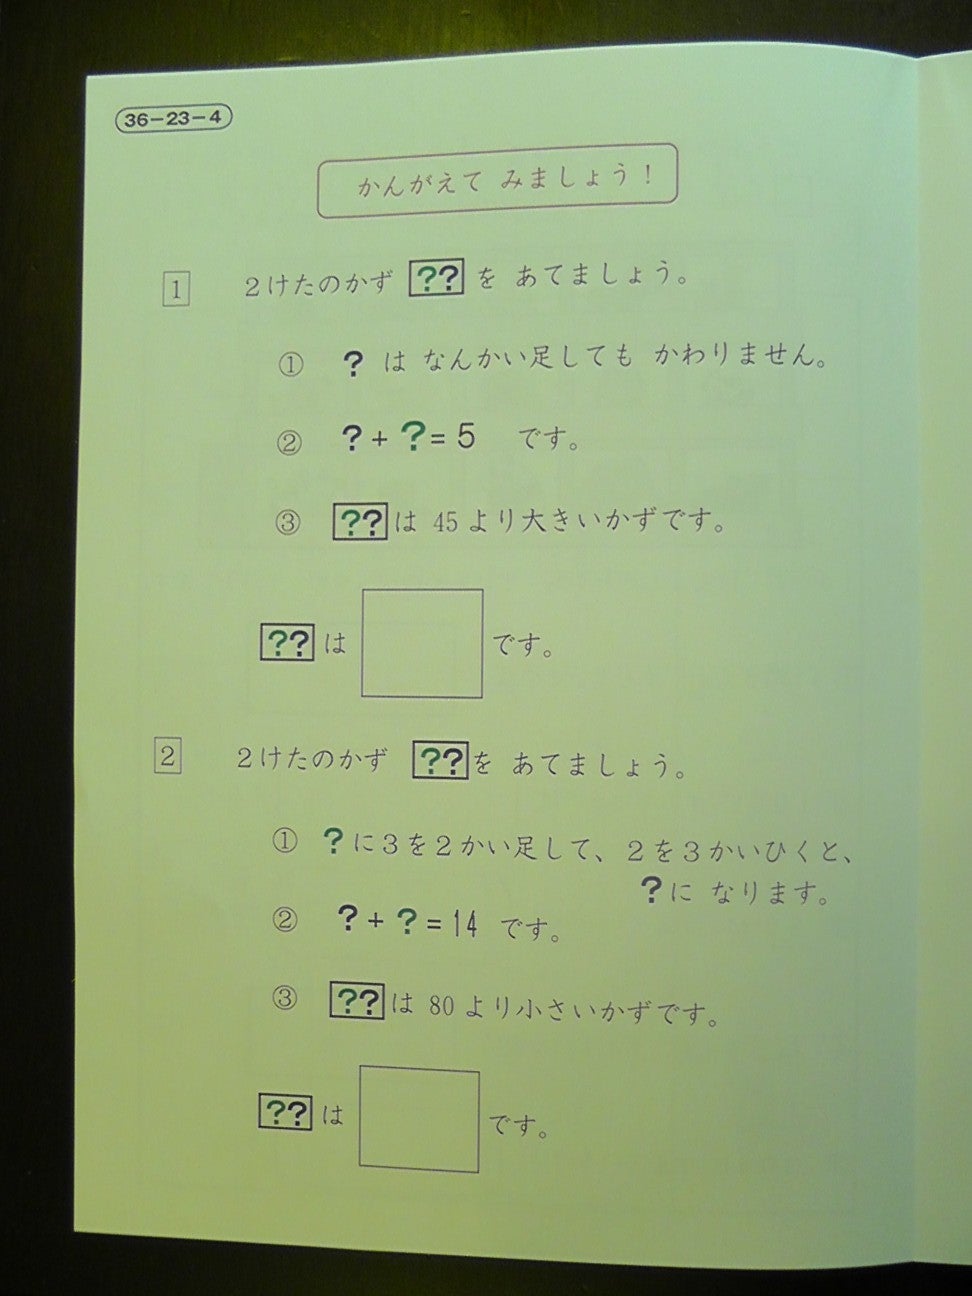 36-23-4
かんがえて みましょう！
1 2けたのかず ??を あてましょう。
① ? は なんかい足しても かわりません。
② ?+?=5 です。
③ ??は 45より大きいかずです。
??は です。
2 2けたのかず ??を あてましょう。
① ?に3を2かい足して、2を3かいひくと、
?に なります。
② ?+?=14 です。
③ ??は 80より小さいかずです。
??は です。